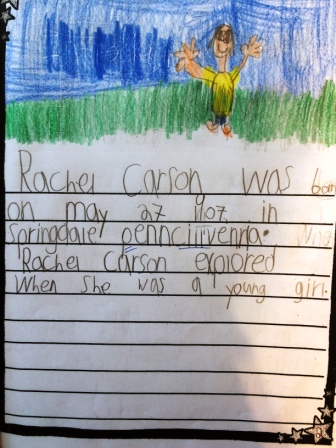 Rachel Carson was born
on may 27 1907 in
springdale penncilivenna.
Rachel Carson explored
When she was a young girl.